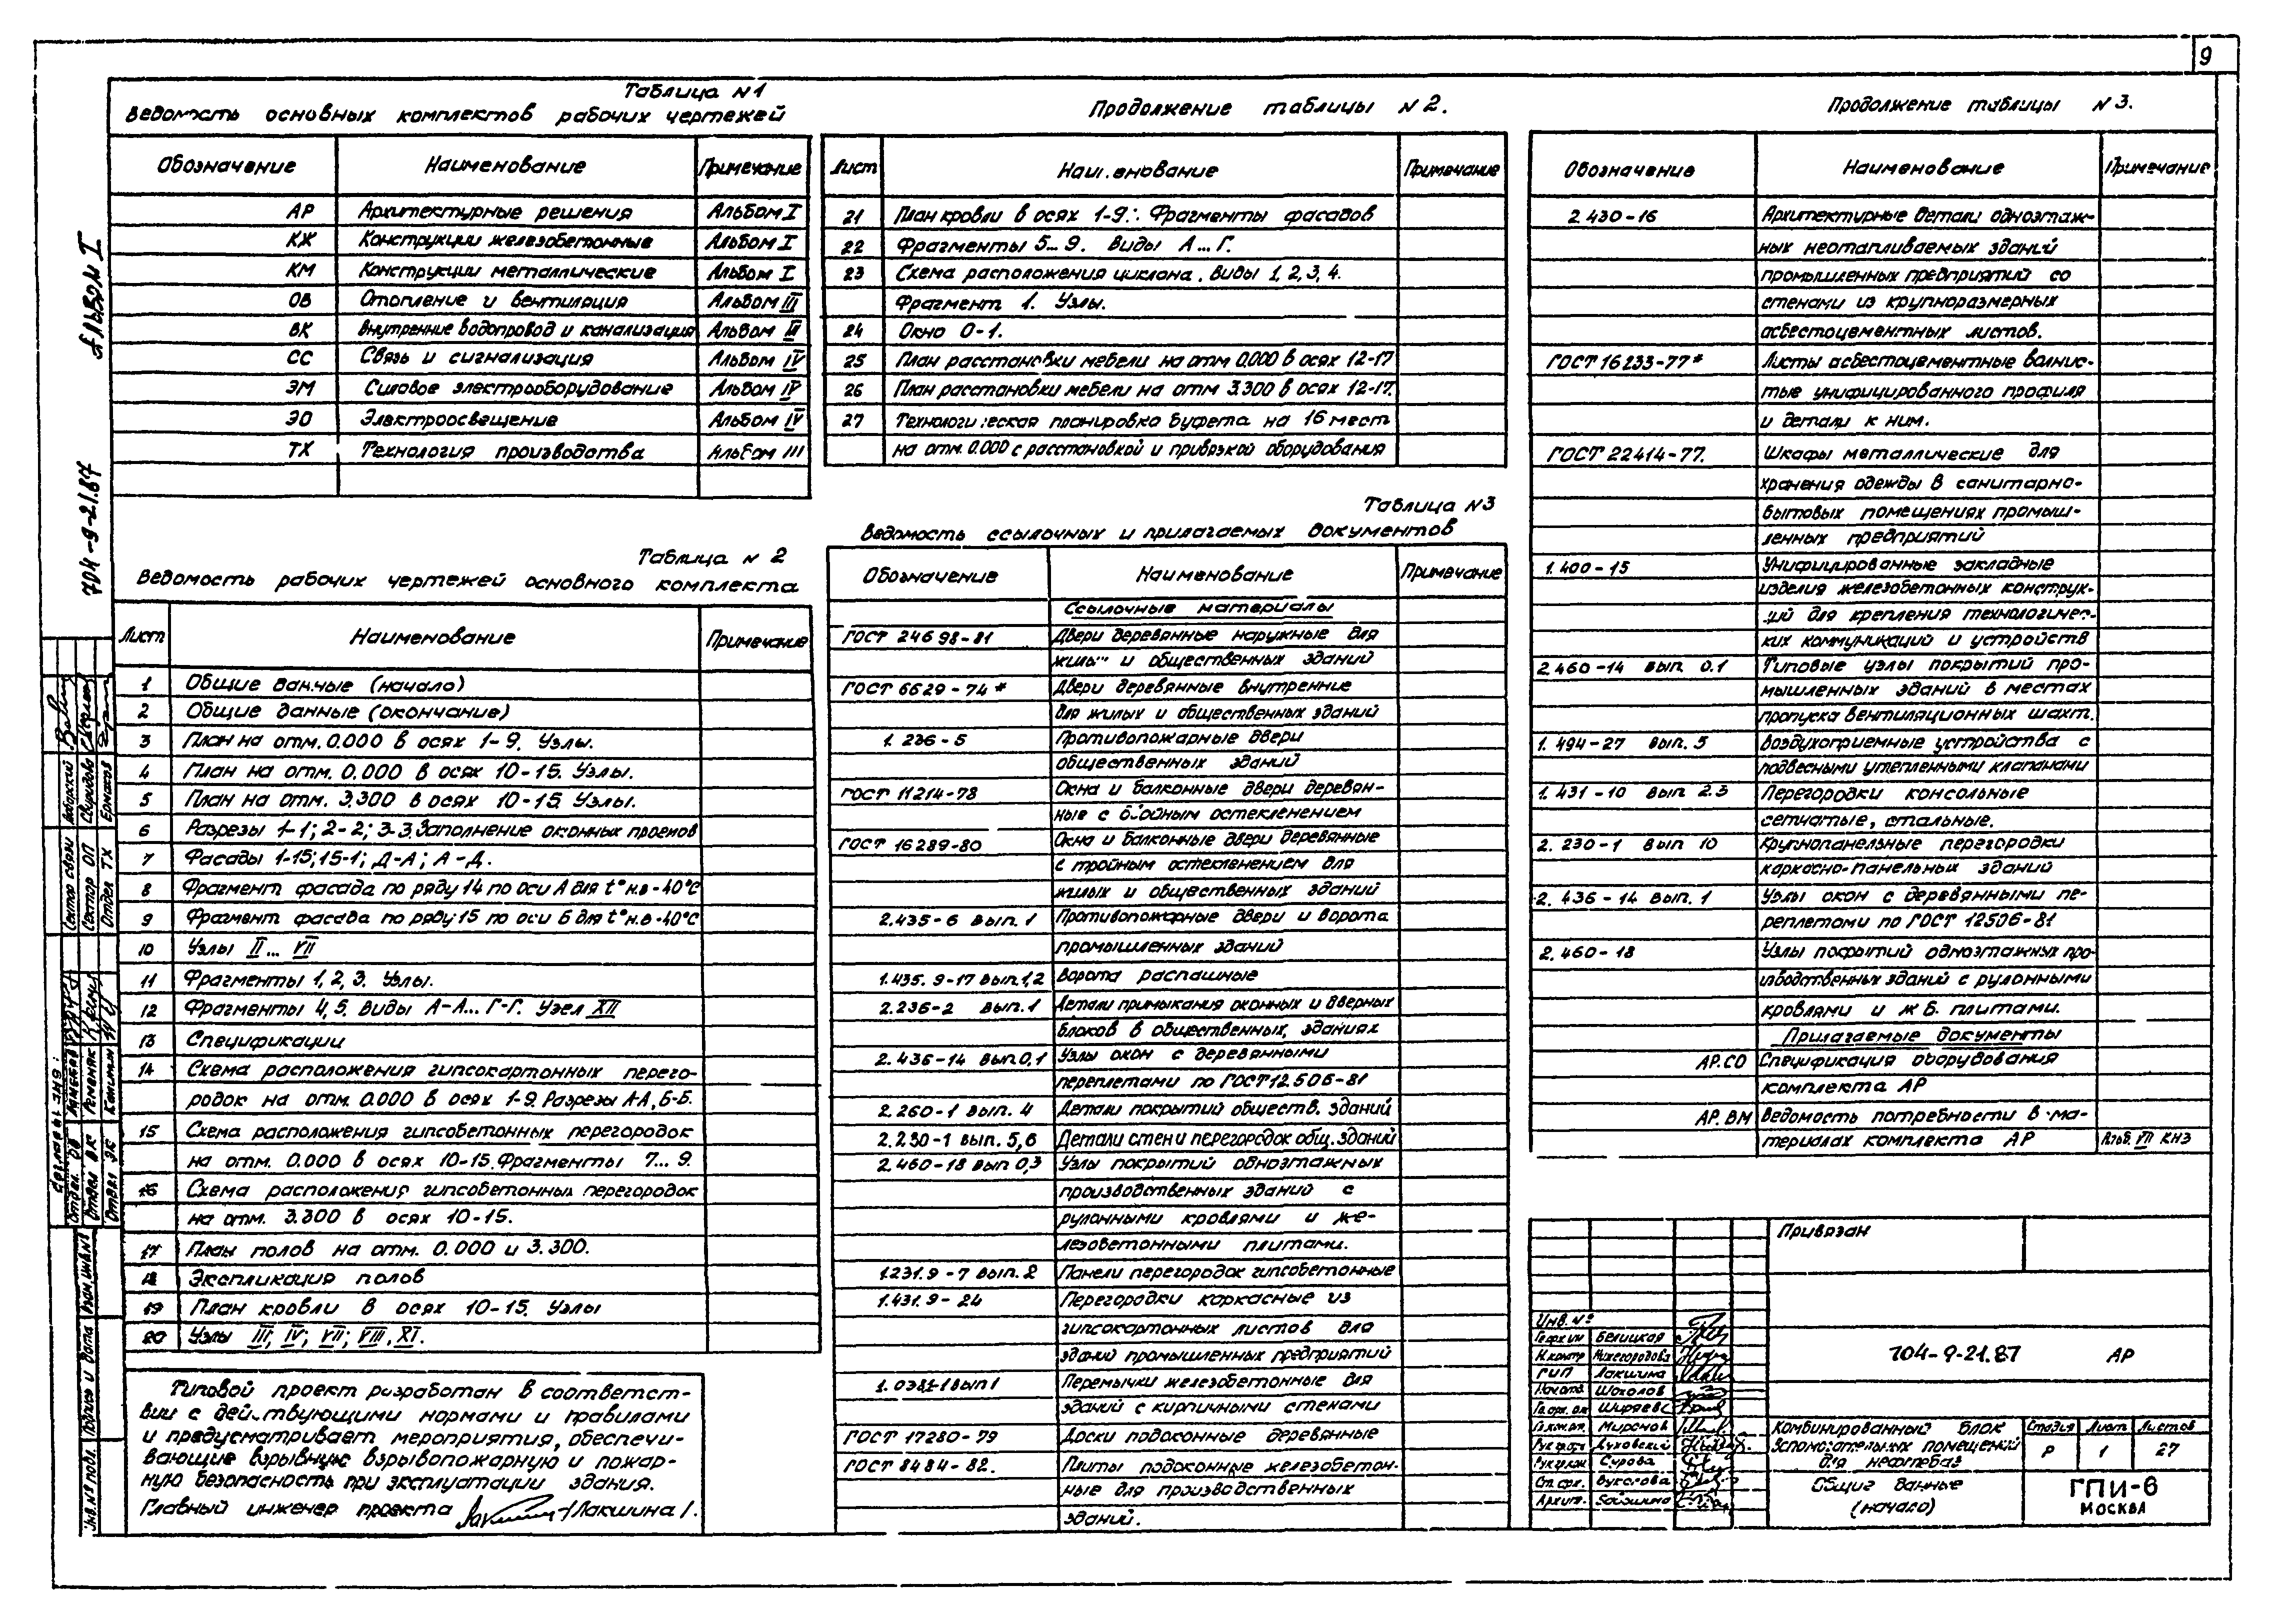 9
Таблица N1
Ведомость основных комплектов рабочих чертежей
Обозначение Наименование Примечание
АР Архитектурные решения Альбом I
КЖ Конструкции железобетонные Альбом I
КМ Конструкции металлические Альбом I
ОВ Отопление и вентиляция Альбом III
ВК Внутренние водопровод и канализация Альбом III
СС Связь и сигнализация Альбом IV
ЭМ Силовое электрооборудование Альбом IV
ЭО Электроосвещение Альбом IV
ТХ Технология производства Альбом III
Таблица N 2
Ведомость рабочих чертежей основного комплекта
Лист Наименование Примечание
1 Общие данные (начало)
2 Общие данные (окончание)
3 План на отм. 0.000 в осях 1-9. Узлы.
4 План на отм. 0.000 в осях 10-15. Узлы.
5 План на отм. 3.300 в осях 10-15. Узлы.
6 Разрезы 1-1; 2-2; 3-3. Заполнение оконных проемов
7 Фасады 1-15; 15-1; Д-А; А-Д.
8 Фрагмент фасада по ряду 14 по оси А для t°н.в-40°С
9 Фрагмент фасада по ряду 15 по оси Б для t°н.в-40°С
10 Узлы II... VII
11 Фрагменты 1, 2, 3. Узлы.
12 Фрагменты 4, 5. Виды А-А... Г-Г. Узел XII
13 Спецификации
14 Схема расположения гипсокартонных перего-
родок на отм. 0.000 в осях 1-9. Разрезы А-А, Б-Б.
15 Схема расположения гипсобетонных перегородок
на отм. 0.000 в осях 10-15. Фрагменты 7... 9.
16 Схема расположения гипсобетонных перегородок
на отм. 3.300 в осях 10-15.
17 План полов на отм. 0.000 и 3.300.
18 Экспликация полов
19 План кровли в осях 10-15. Узлы
20 Узлы III; IV; VII; VIII, XI.
Типовой проект разработан в соответст-
вии с действующими нормами и правилами
и предусматривает мероприятия, обеспечи-
вающие взрывную взрывопожарную и пожар-
ную безопасность при эксплуатации здания.
Главный инженер проекта /Лакшина/.
Продолжение таблицы N 2.
Лист Наименование Примечание
21 План кровли в осях 1-9. Фрагменты фасадов
22 Фрагменты 5... 9. Виды А... Г.
23 Схема расположения циклона. Виды 1, 2, 3, 4.
Фрагмент 1. Узлы.
24 Окно О-1.
25 План расстановки мебели на отм 0.000 в осях 12-17
26 План расстановки мебели на отм 3.300 в осях 12-17.
27 Технологическая планировка буфета на 16 мест
на отм. 0.000 с расстановкой и привязкой оборудования
Таблица N3
Ведомость ссылочных и прилагаемых документов
Обозначение Наименование Примечание
Ссылочные материалы
ГОСТ 24698-81 Двери деревянные наружные для
жилых и общественных зданий
ГОСТ 6629-74* Двери деревянные внутренние
для жилых и общественных зданий
1.236-5 Противопожарные двери
общественных зданий
ГОСТ 11214-78 Окна и балконные двери деревян-
ные с двойным остеклением
ГОСТ 16289-80 Окна и балконные двери деревянные
с тройным остеклением для
жилых и общественных зданий
2.435-6 вып. 1 Противопожарные двери и ворота
промышленных зданий
1.435.9-17 вып. 1,2 Ворота распашные
2.236-2 вып. 1 Детали примыкания оконных и дверных
блоков в общественных зданиях
2.436-14 вып.0,1 Узлы окон с деревянными
переплетами по ГОСТ 12506-81
2.260-1 вып. 4 Детали покрытий обществ. зданий
2.230-1 вып. 5,6 Детали стен и перегородок общ. зданий
2.460-18 вып 0,3 Узлы покрытий одноэтажных
производственных зданий с
рулонными кровлями и же-
лезобетонными плитами.
1.231.9-7 вып. 2 Панели перегородок гипсобетонные
1.431.9-24 Перегородки каркасные из
гипсокартонных листов для
зданий промышленных предприятий
Перемычки железобетонные для
зданий с кирпичными стенами
ГОСТ 17280-79 Доски подоконные деревянные
ГОСТ 8484-82. Плиты подоконные железобетон-
ные для производственных
зданий.
Продолжение таблицы N 3.
Обозначение Наименование Примечание
2.430-16 Архитектурные детали одноэтаж-
ных неотапливаемых зданий
промышленных предприятий со
стенами из крупноразмерных
асбестоцементных листов.
ГОСТ 16233-77* Листы асбестоцементные волнис-
тые унифицированного профиля
и детали к ним.
ГОСТ 22414-77. Шкафы металлические для
хранения одежды в санитарно-
бытовых помещениях промыш-
ленных предприятий
1.400-15 Унифицированные закладные
изделия железобетонных конструк-
ций для крепления технологичес-
ких коммуникаций и устройств
2.460-14 вып. 0.1 Типовые узлы покрытий про-
мышленных зданий в местах
пропуска вентиляционных шахт.
1.494-27 вып. 5 Воздухоприемные устройства с
подвесными утепленными клапанами
1.431-10 вып 2.3 Перегородки консольные
сетчатые, стальные.
2.230-1 вып 10 Крупнопанельные перегородки
каркасно-панельных зданий
2.436-14 вып. 1 Узлы окон с деревянными пе-
реплетами по ГОСТ 12506-81
2.460-18 Узлы покрытий одноэтажных про-
изводственных зданий с рулонными
кровлями и ж Б. плитами.
Прилагаемые документы
АР.СО Спецификация оборудования
комплекта АР
АР.ВМ Ведомость потребности в ма-
териалах комплекта АР Альб. VII КН3
Привязан
Инв. №
Белицкая
Н.контр Нижегородова
ГИП Лакшина
Нач.отд. Шохолов
Ширяев
Миронов
Духовский
Сурова
Вуколова
Архит.
704-9-21.87 АР
Комбинированный блок Стадия Лист Листов
вспомогательных помещений Р 1 27
для нефтебаз
Общие данные ГПИ-6
(начало) МОСКВА
Альбом I
704-9-21.87
Согласовано:
Сектор связи
Сектор ОП Свиридова
Отдел ТХ Ермаков
Отдел ОВ
Отдел ВК Ременяк
Отдел ЭС
Взам. инв. №
Подпись и дата
Инв. № подл.